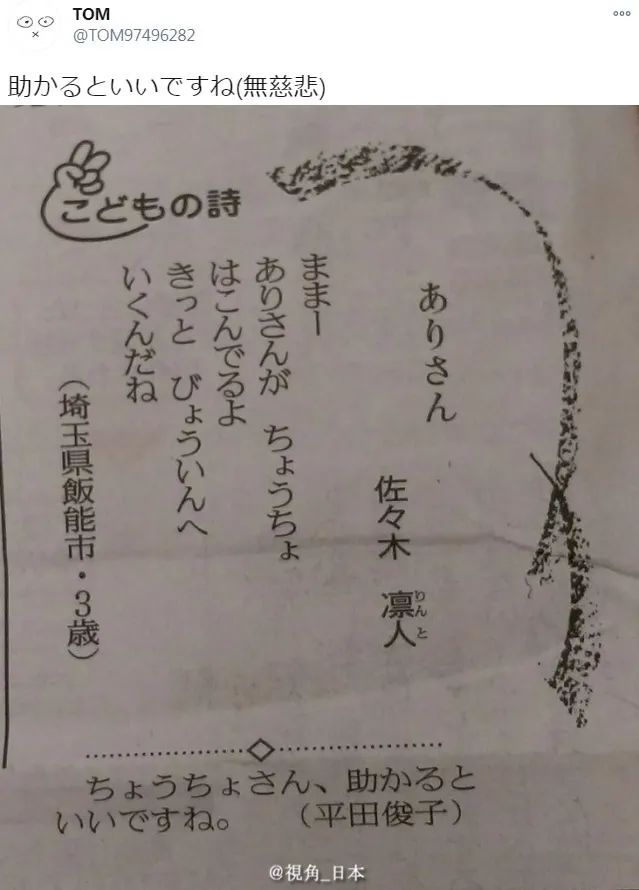 TOM
@TOM97496282
助かるといいですね(無慈悲)
こどもの詩
ありさん
佐々木 凛人
りんと
ままー
ありさんが ちょうちょ
はこんでるよ
きっと びょういんへ
いくんだね
（埼玉県飯能市・3歳）
ちょうちょさん、助かると
いいですね。 （平田俊子）
@視角_日本